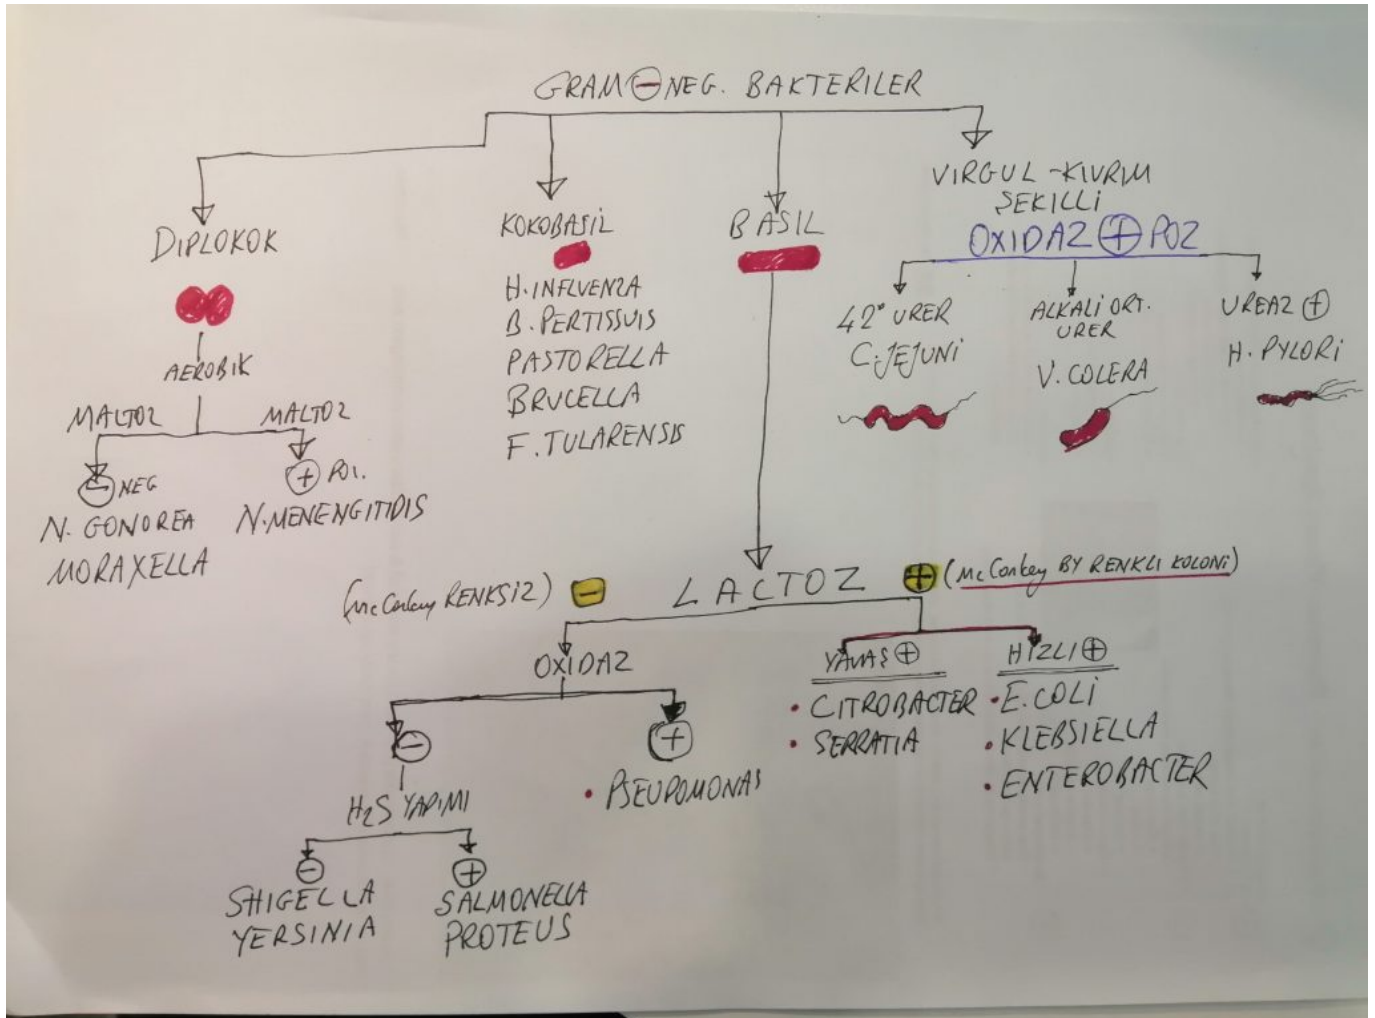 GRAM ⊖ NEG. BAKTERILER
DIPLOKOK
AEROBIK
MALTOZ
⊖ NEG
N. GONOREA
MORAXELLA
MALTOZ
⊕ POZ.
N. MENENGITIDIS
KOKOBASIL
H. INFLUENZA
B. PERTISSUIS
PASTORELLA
BRUCELLA
F. TULARENSIS
BASIL
VIRGUL - KIVRIM
ŞEKILLI
OXIDAZ ⊕ POZ
42° URER
C. JEJUNİ
ALKALİ ORT.
URER
V. COLERA
UREAZ ⊕
H. PYLORİ
(Mc Conkey RENKSİZ) - LACTOZ + (Mc Conkey BY RENKLI KOLONİ)
OXIDAZ
⊖
H₂S YAPIMI
⊖
SHIGELLA
YERSINIA
⊕
SALMONELLA
PROTEUS
⊕
• PSEUDOMONAS
YAVAŞ ⊕
• CITROBACTER
• SERRATIA
HIZLI ⊕
• E. COLİ
• KLEBSIELLA
• ENTEROBACTER